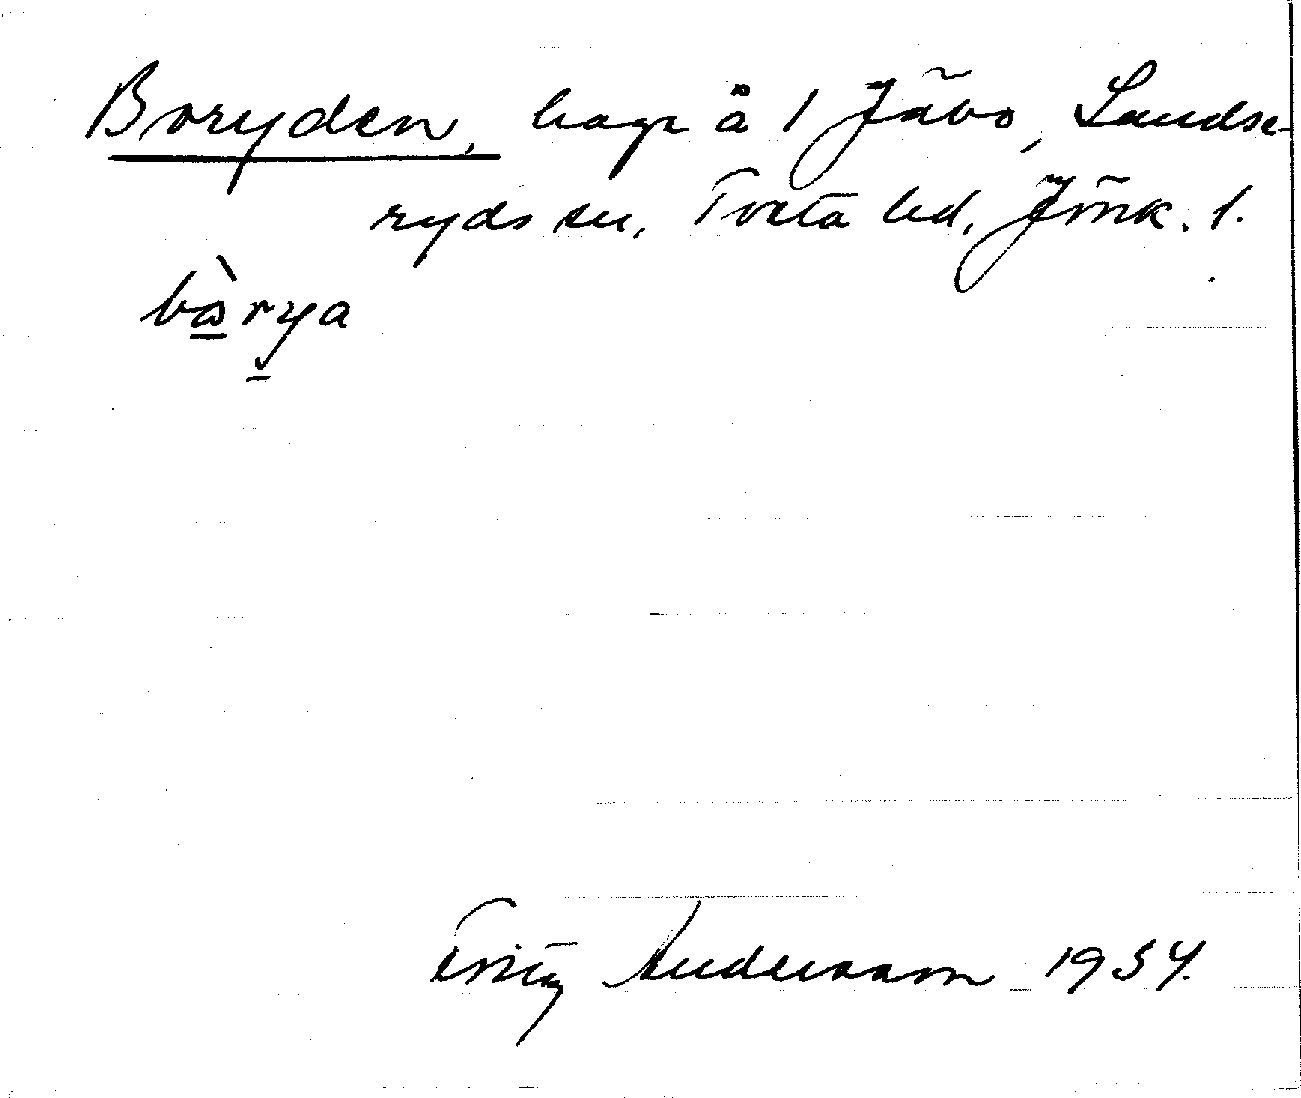 Boryden, hage å 1 Jävo, Landse-
ryds sn, Tveta hd, Jönk. l.
bòrya
Fritz Andersson 1934.